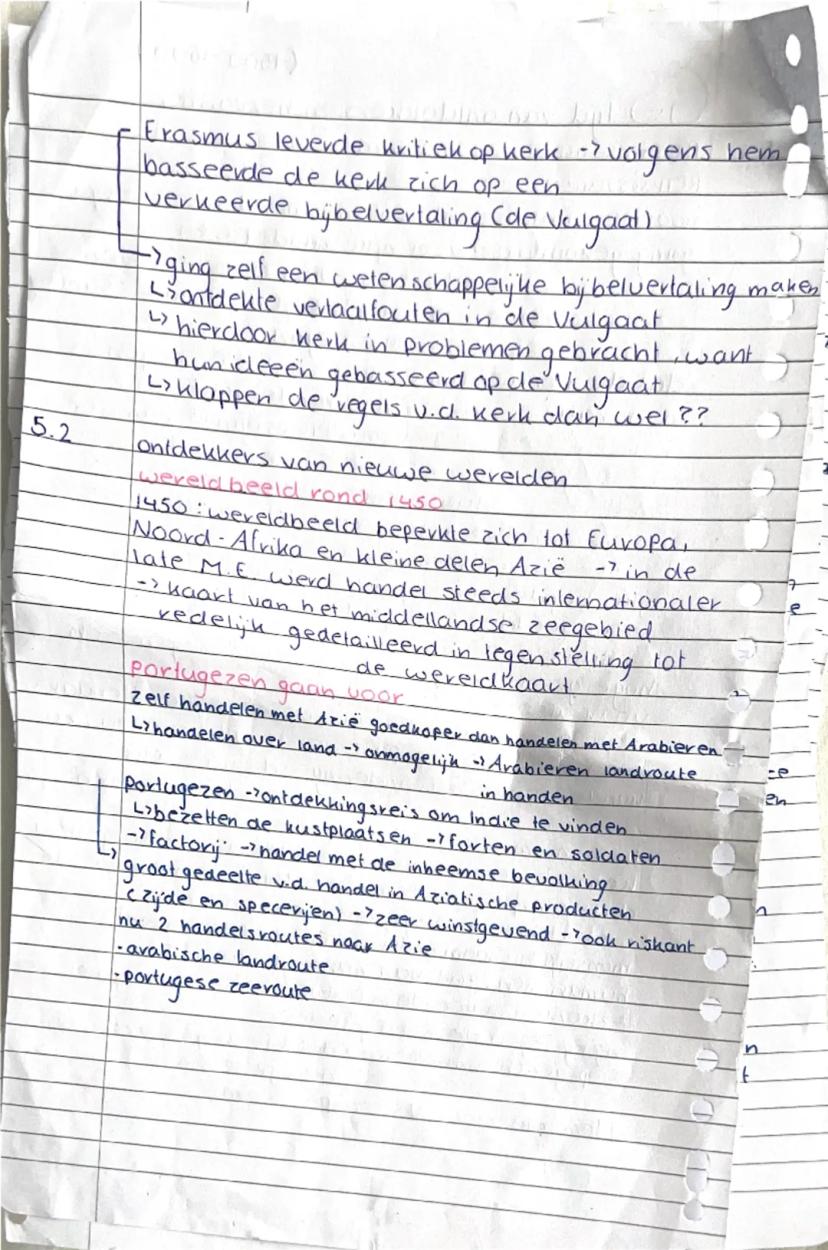 Erasmus leverde kritiek op kerk -> volgens hem
basseerde de kerk zich op een
verkeerde bijbelvertaling (de Vulgaat)
-> ging zelf een wetenschappelijke bijbelvertaling maken
↳ ontdekte vertaalfouten in de Vulgaat
↳ hierdoor kerk in problemen gebracht, want
hun ideeën gebasseerd op de Vulgaat
↳ kloppen de regels v.d. kerk dan wel??
5.2
ontdekkers van nieuwe werelden
wereldbeeld rond 1450
1450: wereldbeeld beperkte zich tot Europa,
Noord-Afrika en kleine delen Azië -> in de
late M.E. werd handel steeds internationaler
-> kaart van het middellandse zeegebied
redelijk gedetailleerd in tegenstelling tot
de wereldkaart
portugezen gaan voor
zelf handelen met Azië goedkoper dan handelen met Arabieren
↳ handelen over land -> onmogelijk -> Arabieren landroute
in handen
portugezen -> ontdekkingsreis om Indië te vinden
↳ bezetten de kustplaatsen -> forten en soldaten
-> factorij -> handel met de inheemse bevolking
-> groot gedeelte v.d. handel in Aziatische producten
(zijde en specerijen) -> zeer winstgevend -> ook riskant
nu 2 handelsroutes naar Azie
· arabische landroute
· portugese zeeroute
e
te
en
n
t